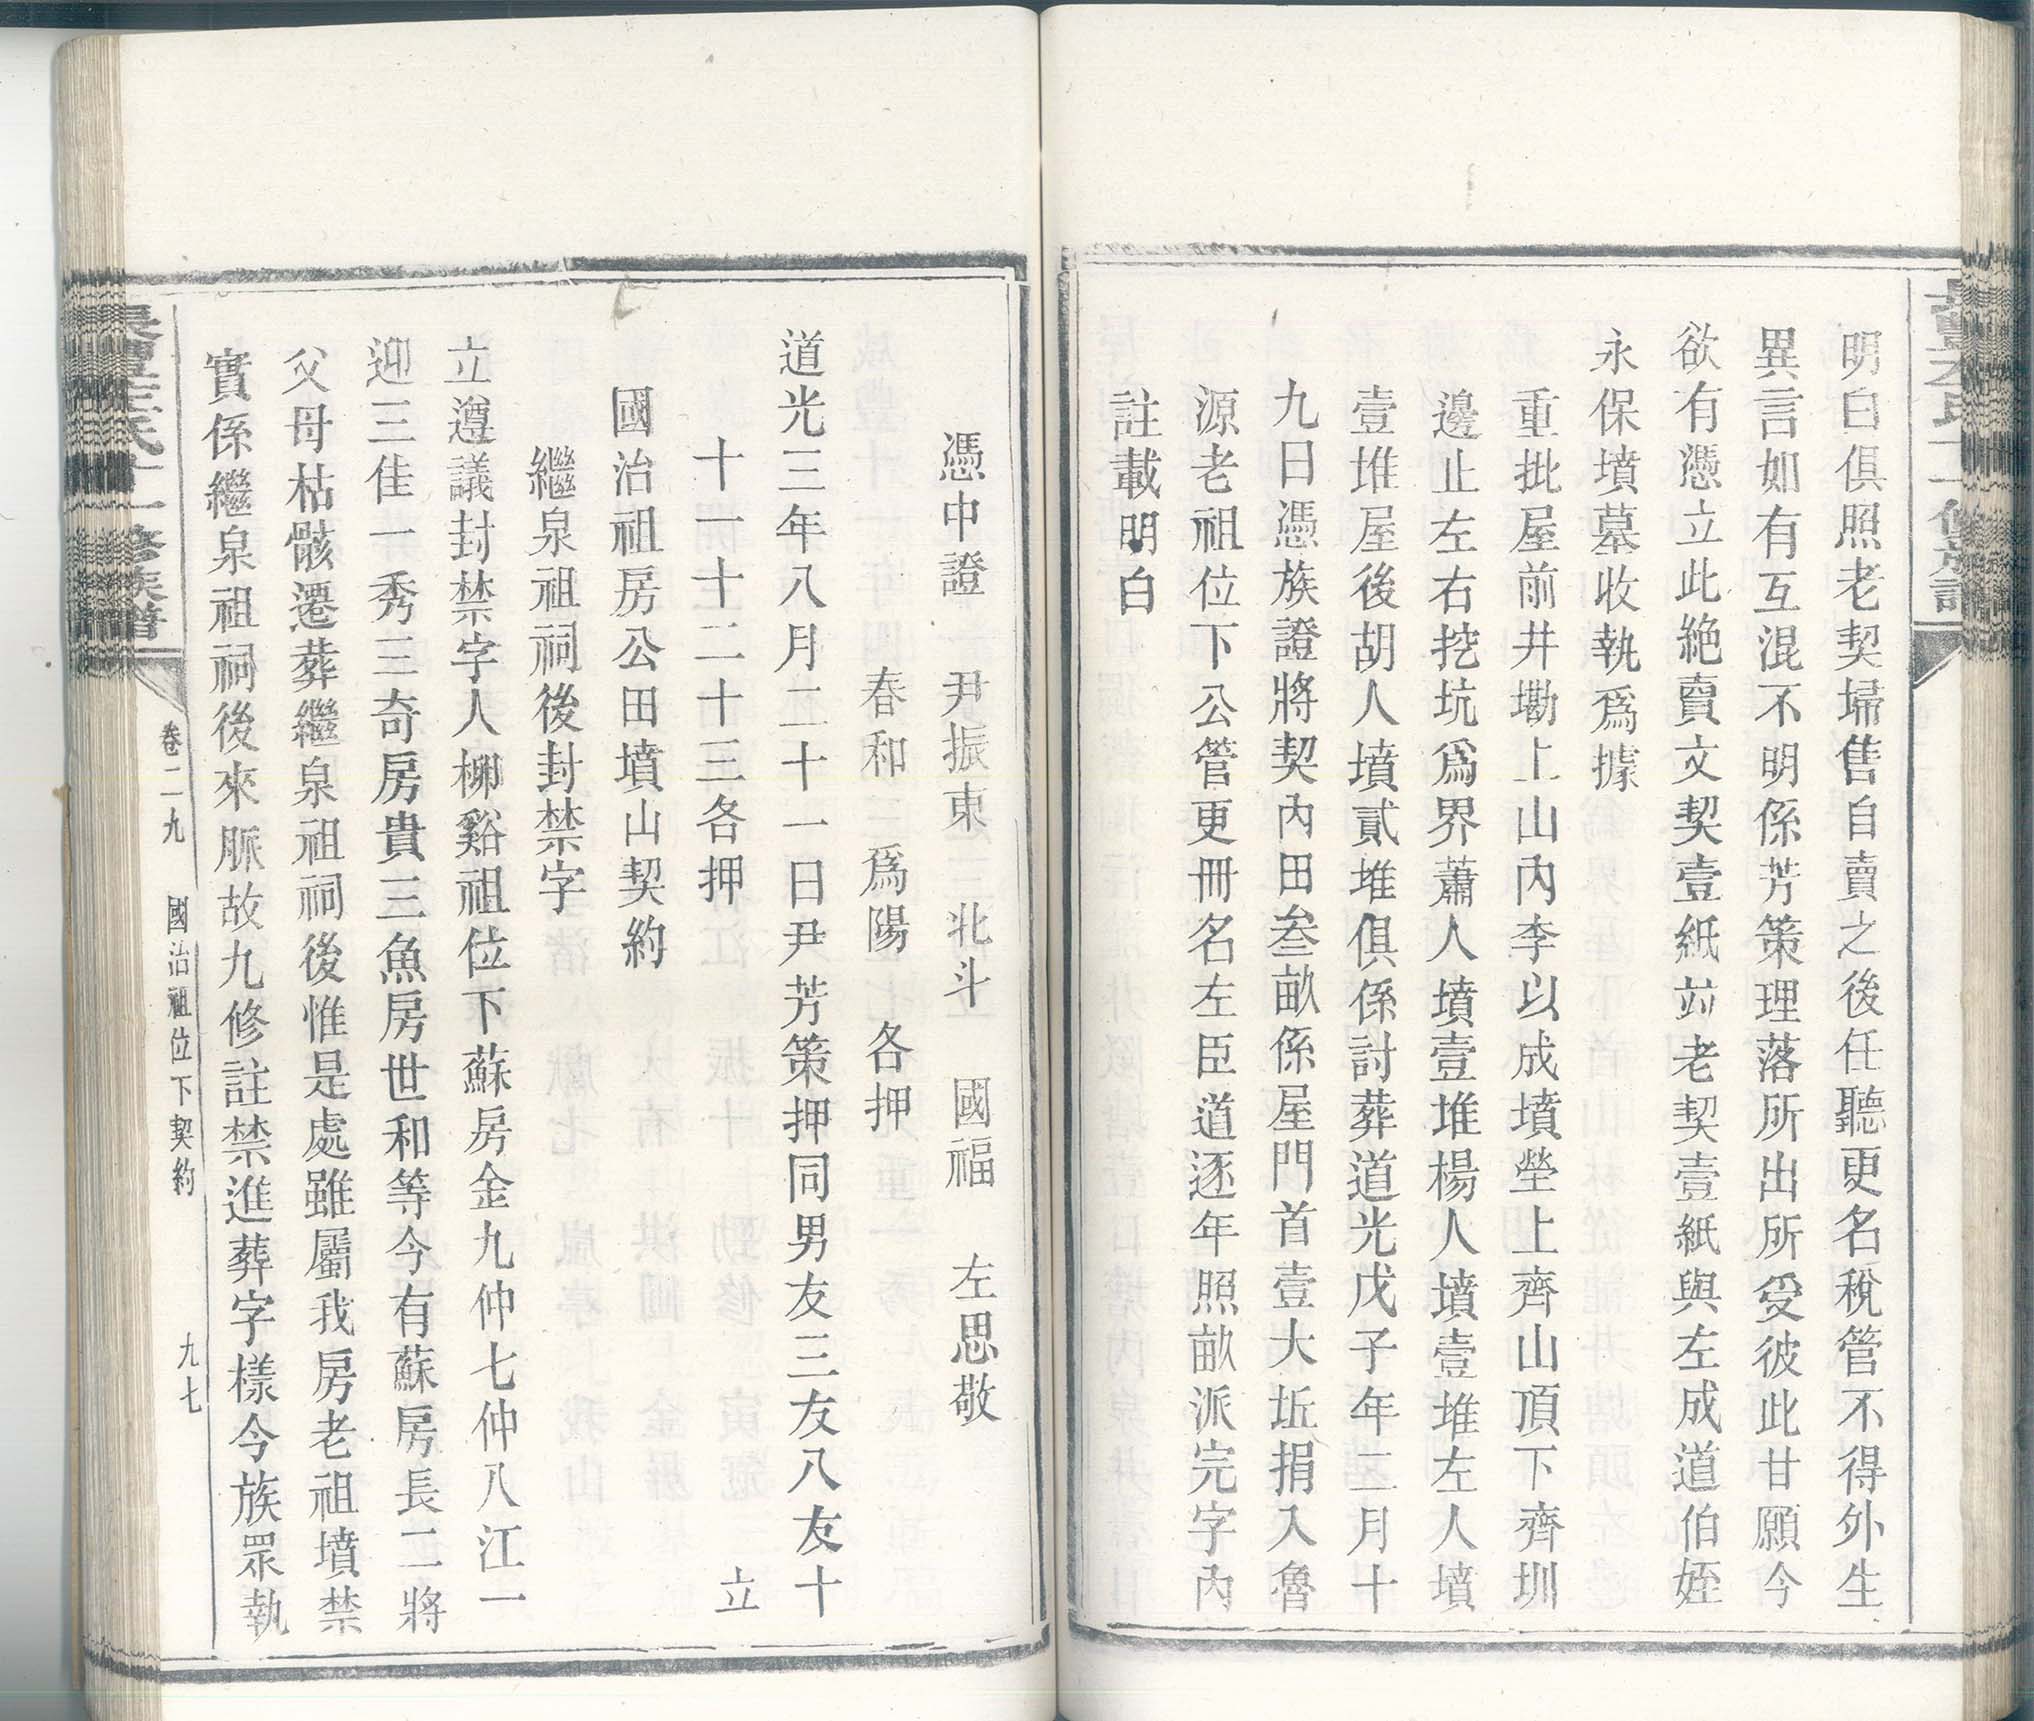 明白俱照老契埽售自賣之後任聽更名稅管不得外生
異言如有互混不明係芳策理落所出所受彼此甘願今
欲有憑立此絶賣文契壹紙竝老契壹紙與左成道伯姪
永保墳墓收執爲據
重批屋前井墈上山內李以成墳塋上齊山頂下齊圳
邊止左右挖坑爲界蕭人墳壹堆楊人墳壹堆左人墳
壹堆屋後胡人墳貳堆俱係討葬道光戊子年二月十
九日憑族證將契內田叁畝係屋門首壹大坵捐入魯
源老祖位下公管更冊名左臣道逐年照畝派完字內
註載明白
憑中證 尹振東 北斗 國福 左思敬
春和 爲陽 各押
道光三年八月二十一日尹芳策押同男友三友八友十
十一十二十三各押 立
國治祖房公田墳山契約
繼泉祖祠後封禁字
立遵議封禁字人柳谿祖位下蘇房金九仲七仲八江一
迎三佳一秀三奇房貴三魚房世和等今有蘇房長二將
父母枯骸遷葬繼泉祖祠後惟是處雖屬我房老祖墳禁
實係繼泉祖祠後來脈故九修註禁進葬字樣今族眾執
卷二九 國治祖位下契約 九七